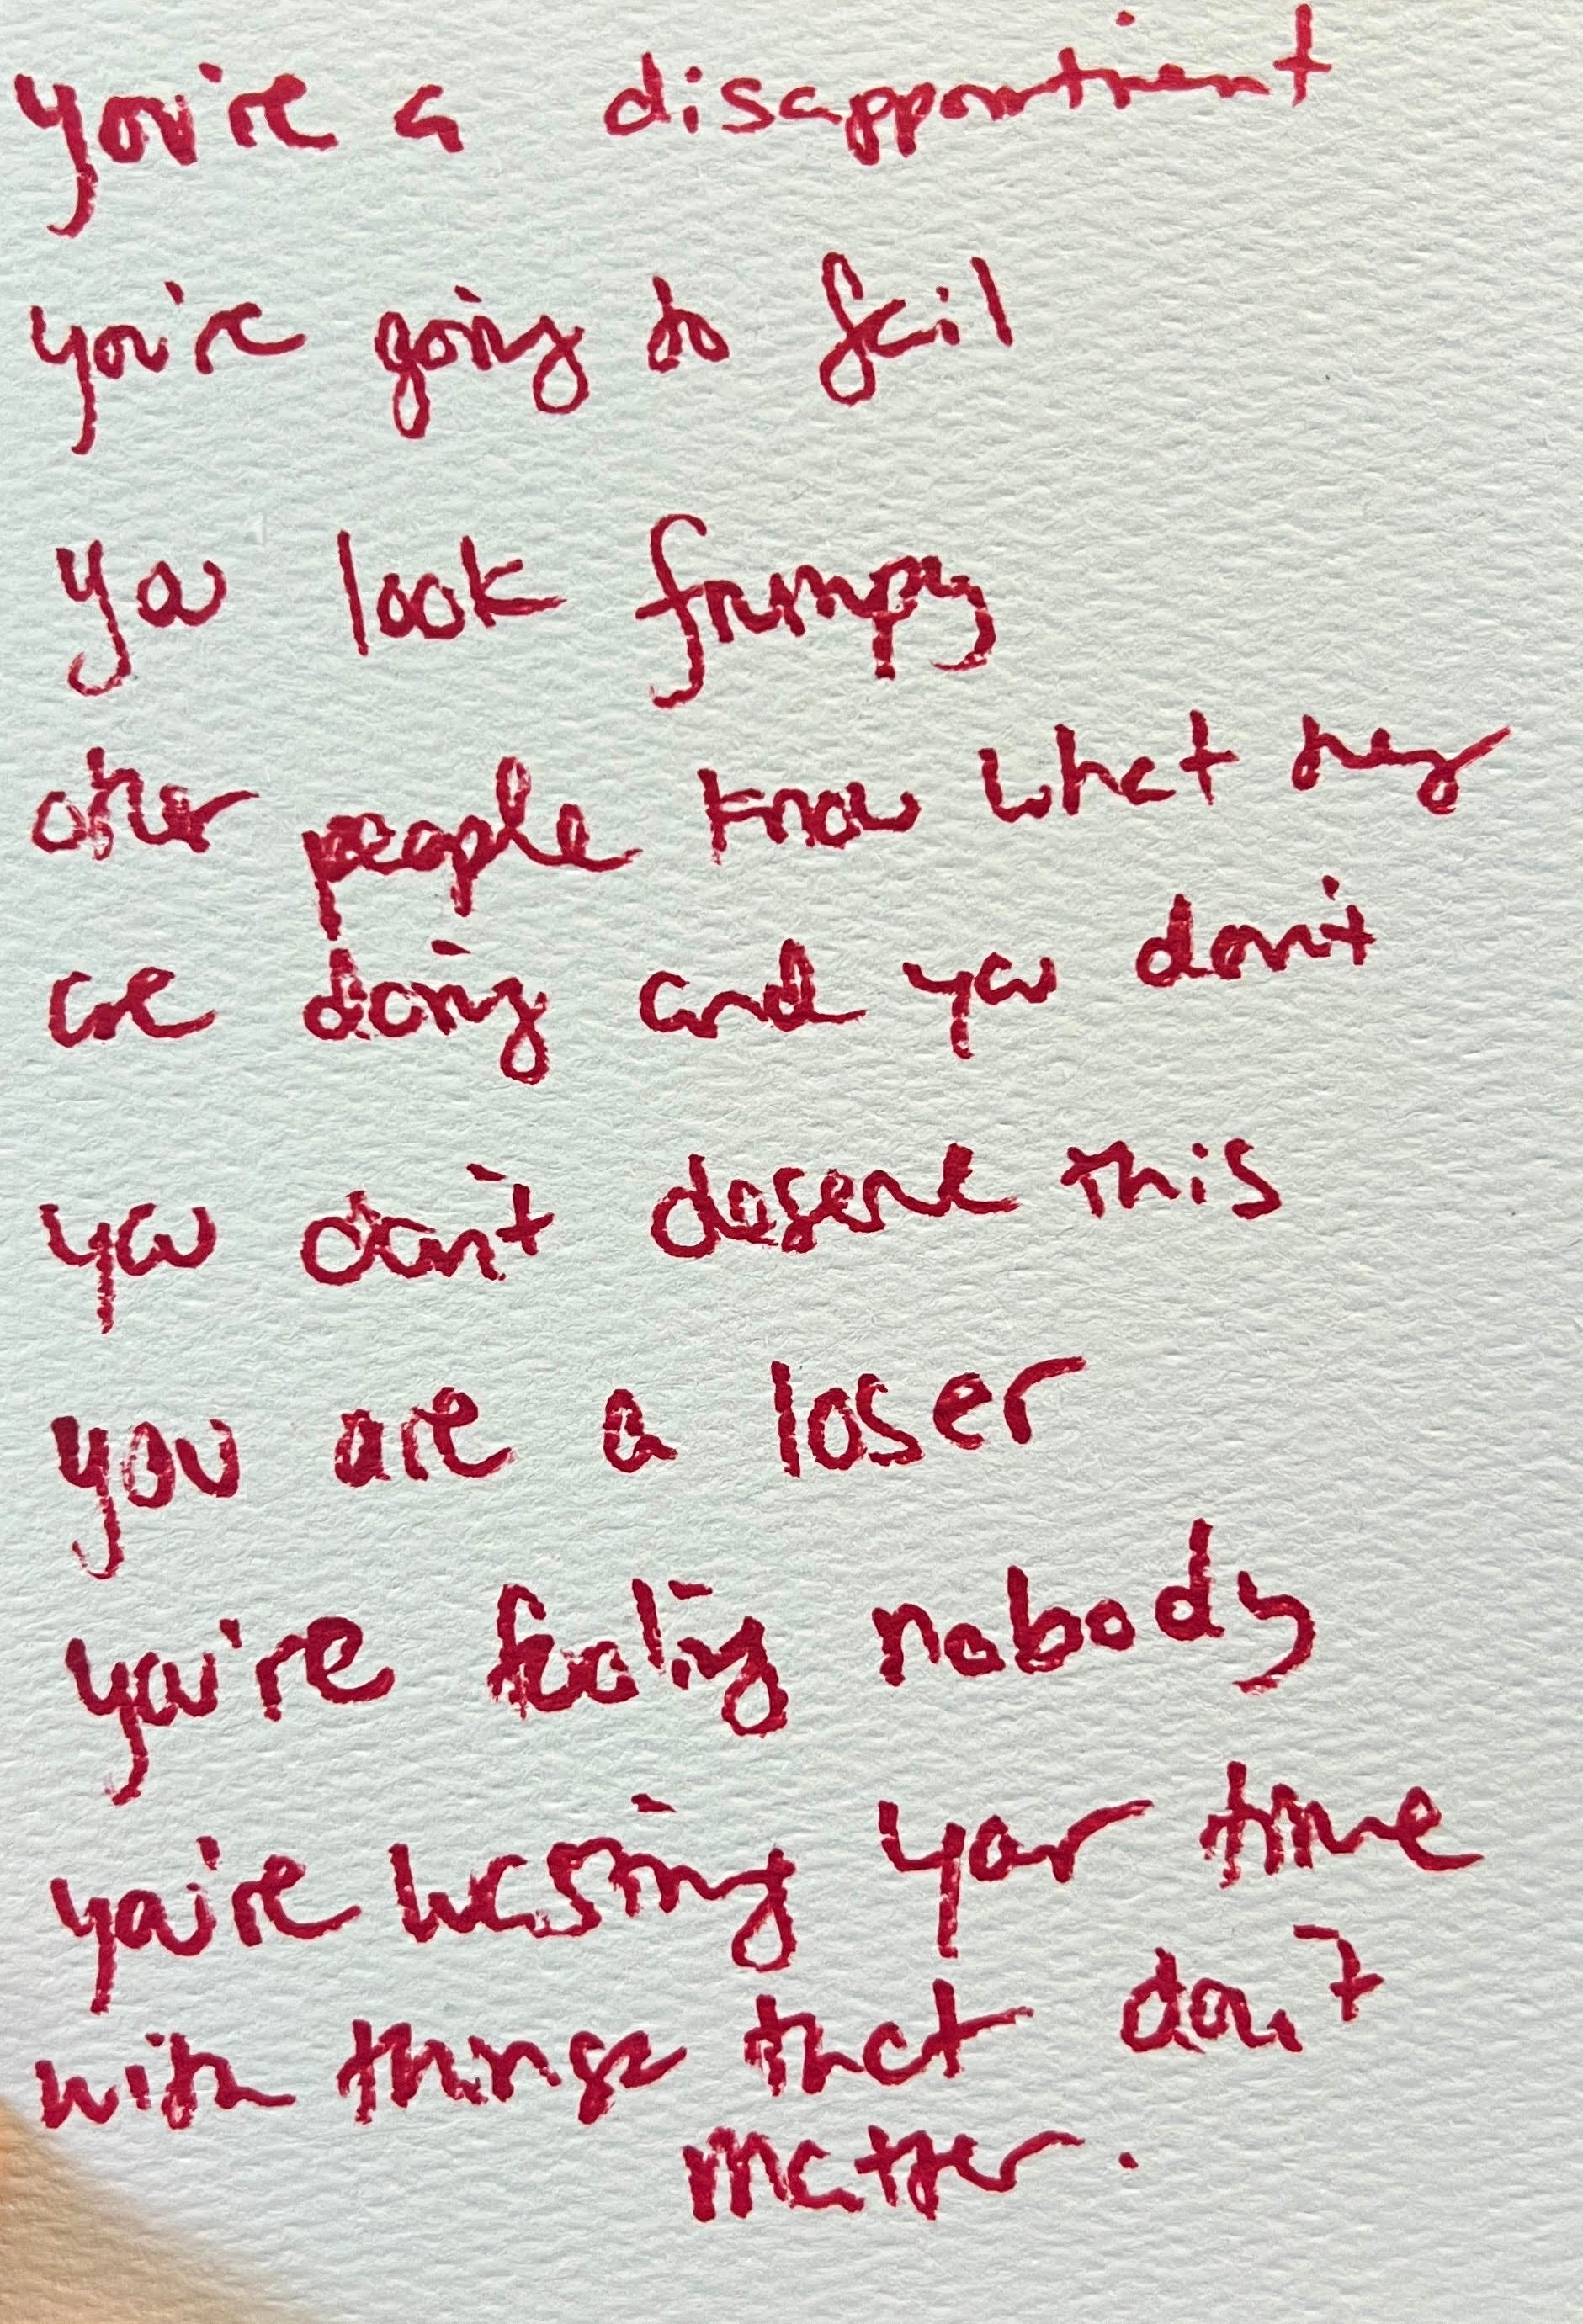 you're a disappointment
you're going to fail
you look frumpy
other people know what they
are doing and you don't
you don't deserve this
you are a loser
you're fooling nobody
you're wasting your time
with things that don't
matter.